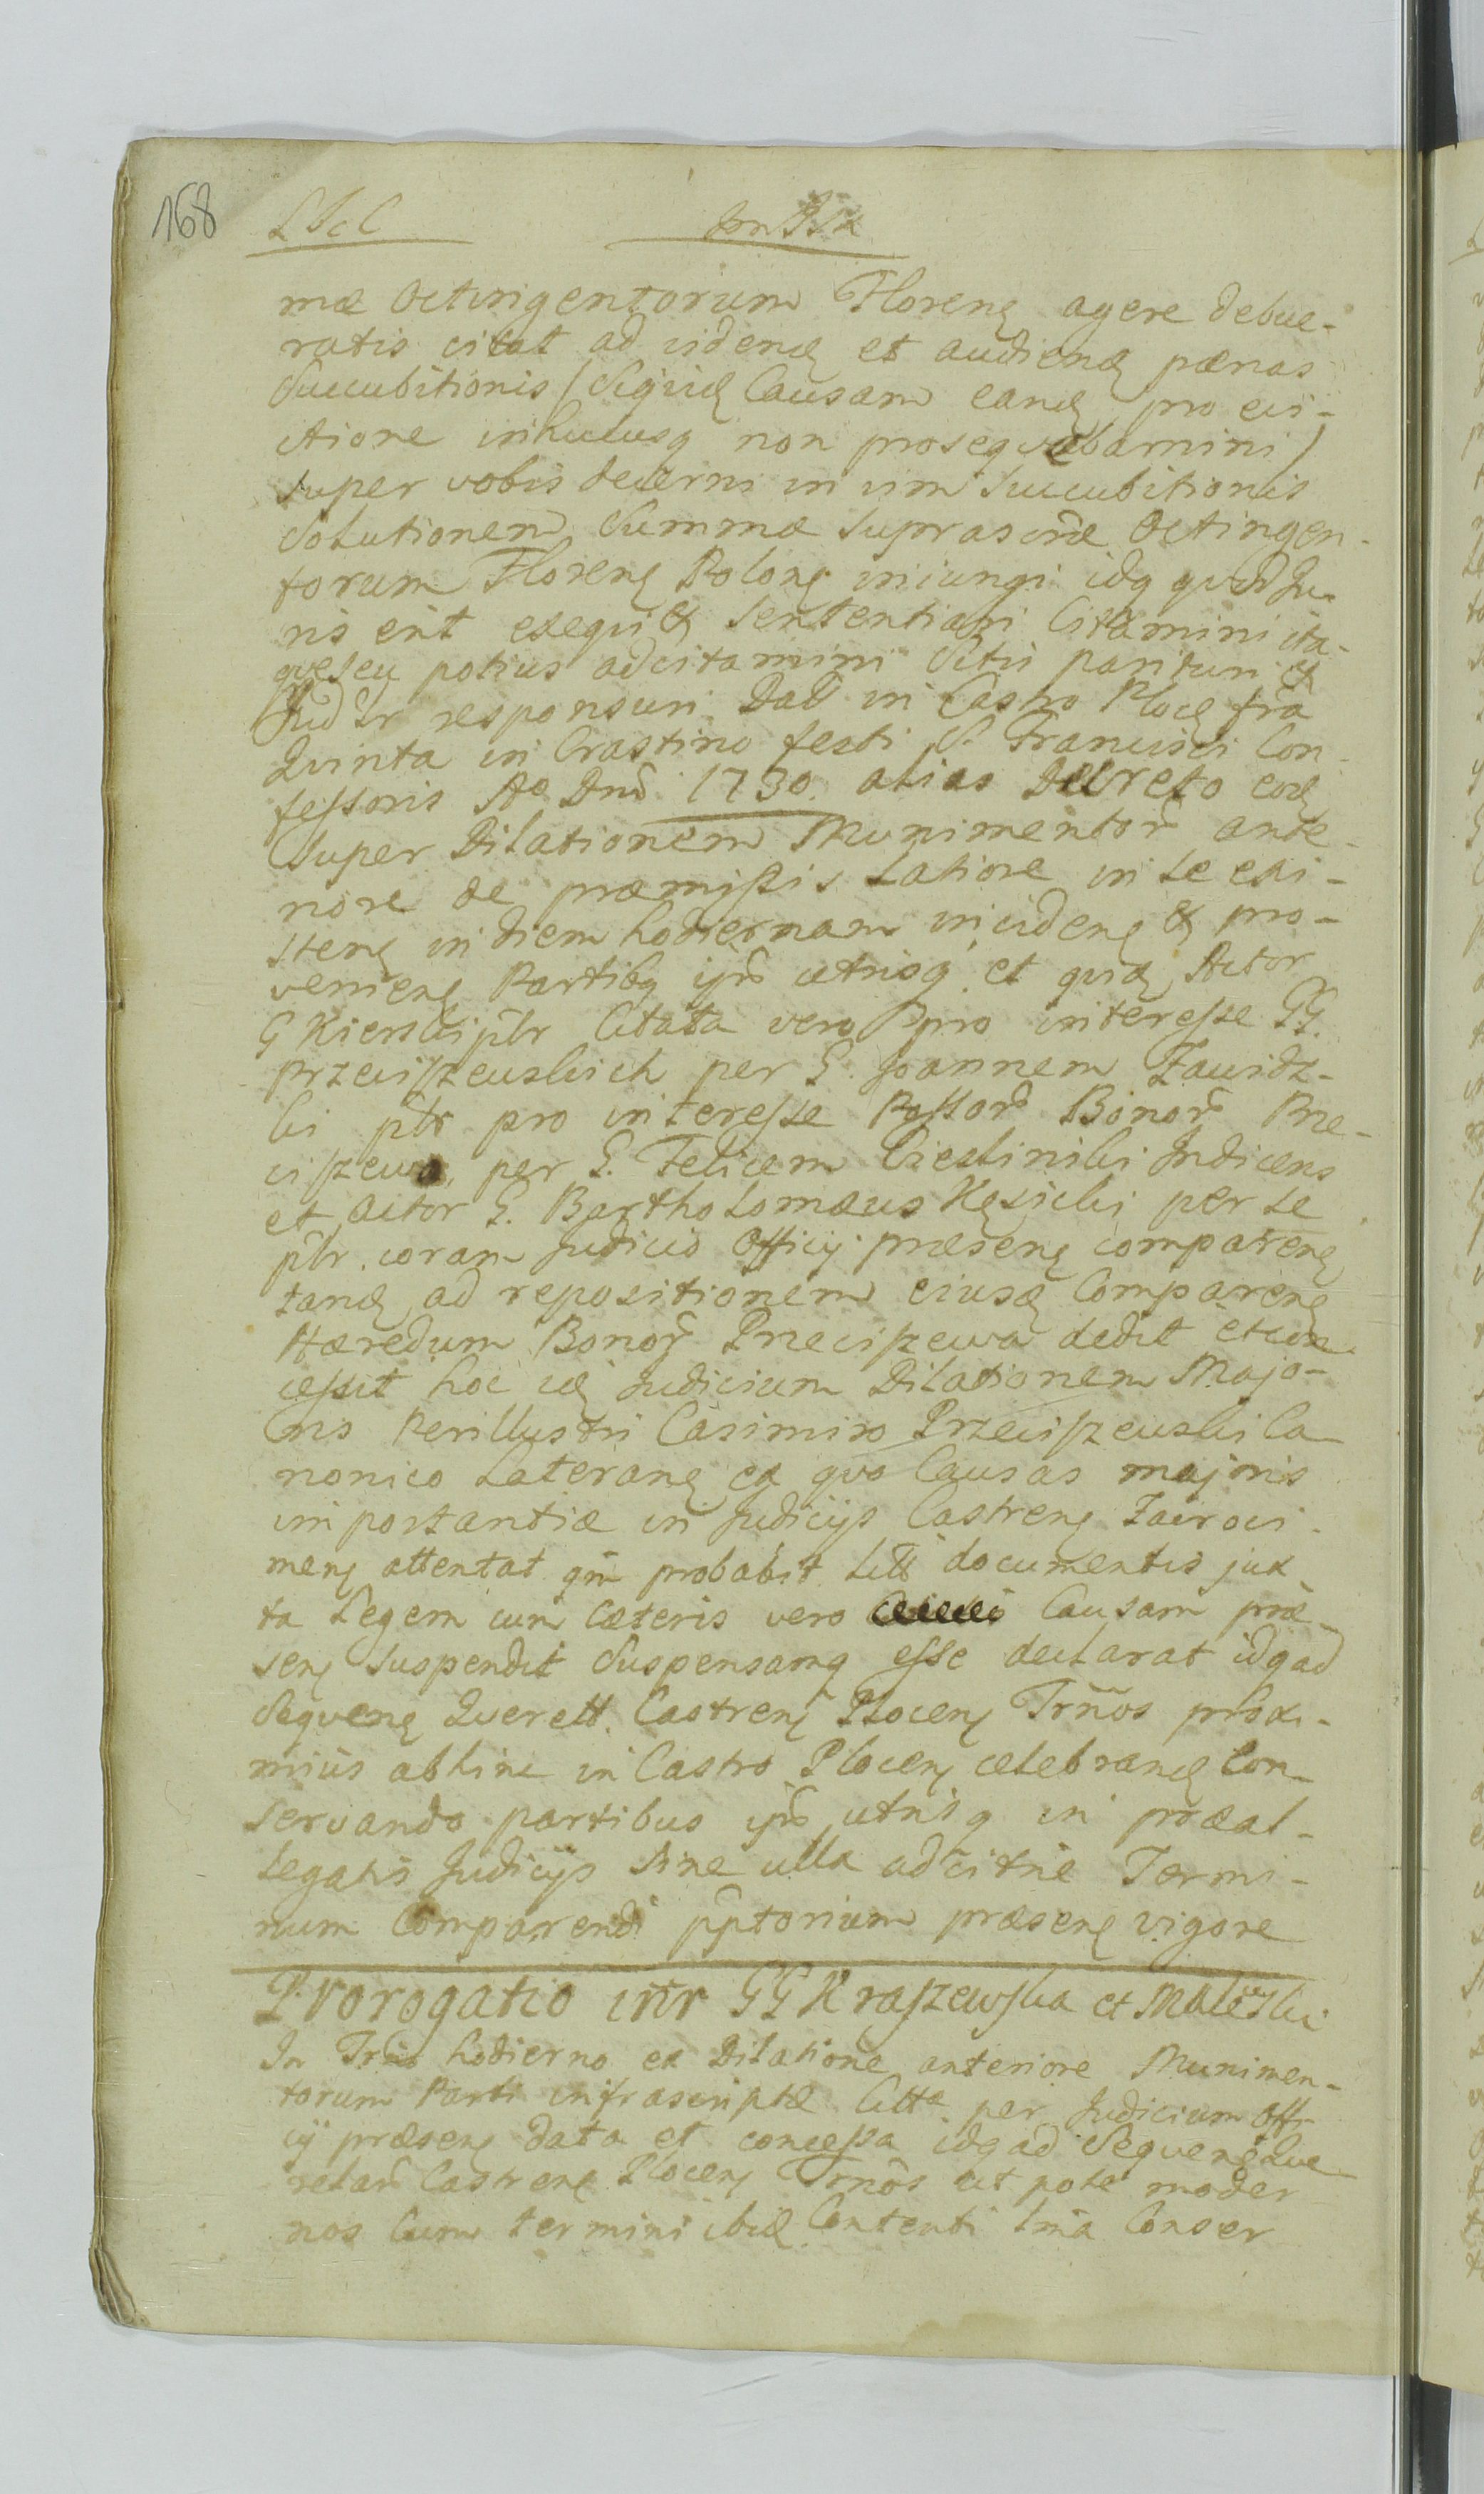 168
mæ Octingentorum Floren agere debue-
ratis citat ad viden et audien pœnas
Succubitionis (Siquid Causam eand pro evi-
ctione inhucusq non prosequebamini)
super vobis decerni in vim succubitionis
Solutionem Summæ suprascræ Octingen-
torum Floren Polon iniungi idq quod Ju-
ris erit exequi & sententiari Citamini ita-
que seu potius adcitamini Sitis parituri &
Jud'r responsuri Datt in Castro Ploc fra
Quinta in Crastino festi S. Francisci Con-
fessoris Ao Dnī 1730. alias Decreto eod
super Dilationem Munimentor̃ ante-
riore de præmissis Latiore in se exi-
sten in diem hodiernam inciden & pro-
venien Partibq ijs utrisq et quid Actor
G Kierski pr̃ Citata vero pro interesse GG.
Przeciszewskich per G. Joannem Zawidz-
ki pr̃ pro interesse Possor̃ Bonor̃ Prze-
ciszewo per G. Felicem Cieslinski Judicens
et Actor G. Bartholomæus Kęsicki per se
pr̃. coram Judicio Officij præsen comparen
tand ad repositionem eiusd Comparen
Hæredum Bonor̃ Przeciszewa dedit et con-
cessit hoc id Judicium Dilationem Majo-
ris Perillustri Casimiro Przeciszewski Ca-
nonico Lateran ex quo Causas majoris
importantiæ in Judicijs Castren Zacroci-
men attentat qm̃ probabit Litt documentis jux
ta Legem cum Cæteris vero Causam præ
sen suspendit Suspensamq esse declarat idq ad
Sequen Querell. Castren Plocen Trños proxi-
mius abhinc in Castro Plocen celebrand Con-
servando partibus ijs utrisq in præal-
legatis Judicijs sine ulla adcitñe Termi-
num Comparendi pptorium præsen vigore
Prorogatio intr GG Kraszewska et Malewski
In Trño hodierno ex Dilatione anteriore Munimen-
torum Parti infrascriptæ Cittæ per Judicium Offi-
cij præsen data et concessa idq ad Sequen Que-
relar̃ Castren Plocen Trños ut pote moder
nos Cum termini ibid Contenti Conser